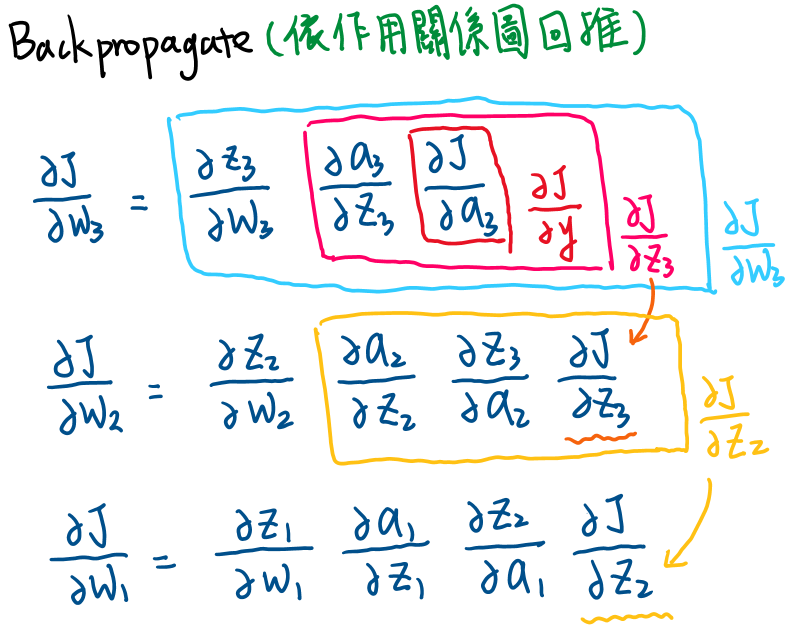 Backpropagate (依作用關係圖回推)
∂J/∂w₃ = ∂z₃/∂w₃ ∂a₃/∂z₃ ∂J/∂a₃ ∂J/∂y ∂J/∂z₃ ∂J/∂w₃
∂J/∂w₂ = ∂z₂/∂w₂ ∂a₂/∂z₂ ∂z₃/∂a₂ ∂J/∂z₃ ∂J/∂z₂
∂J/∂w₁ = ∂z₁/∂w₁ ∂a₁/∂z₁ ∂z₂/∂a₁ ∂J/∂z₂